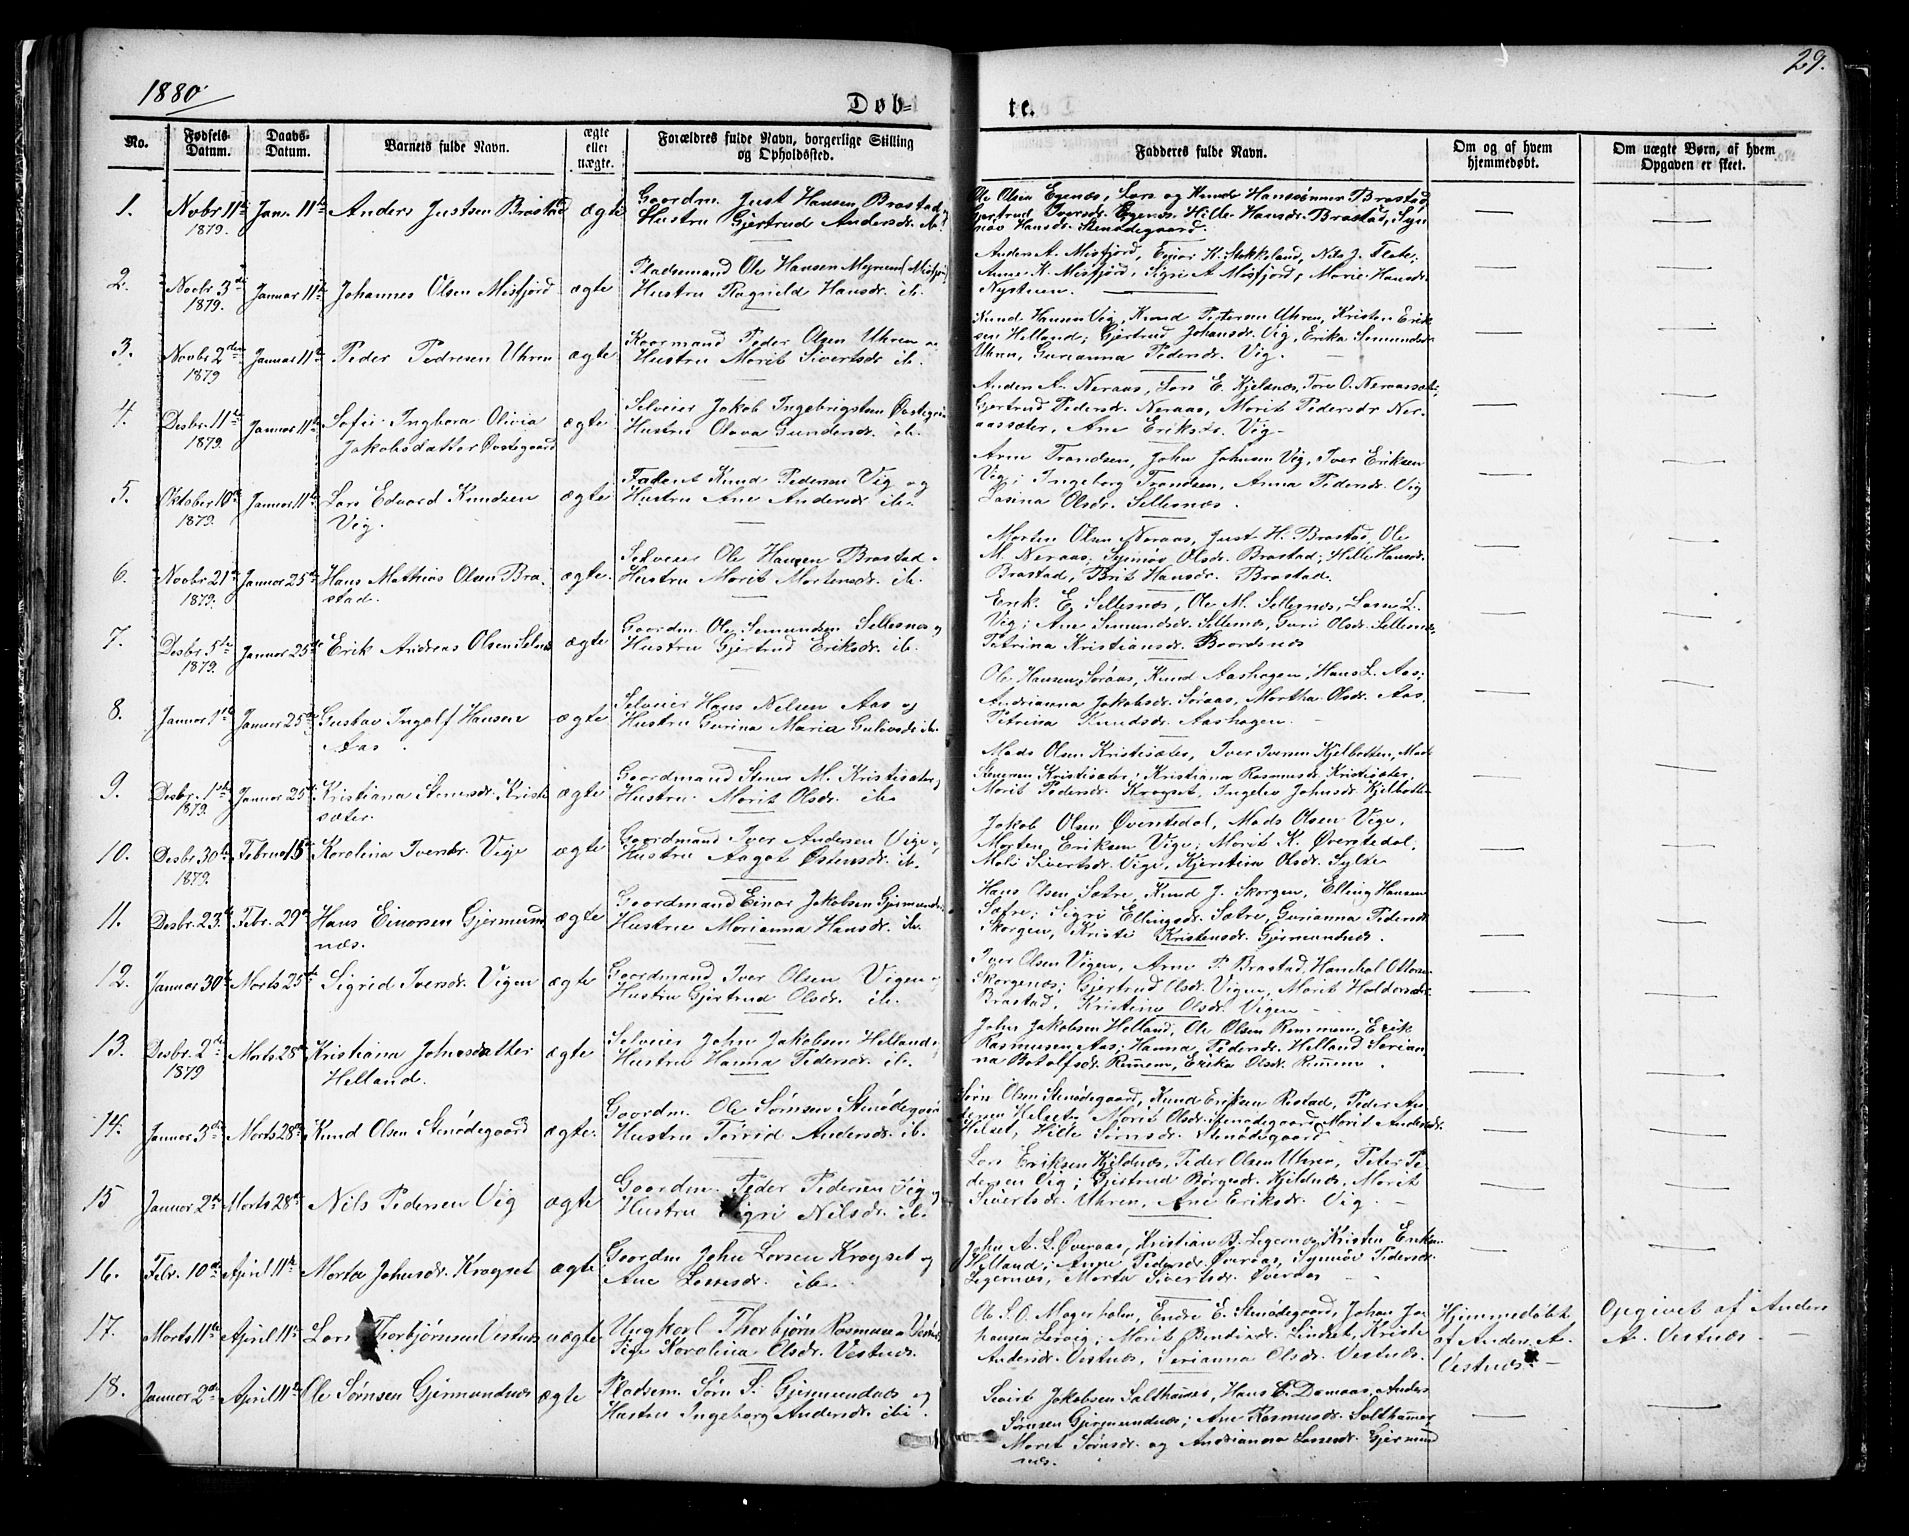 1880.
29.
Døb-
te.
No.
Fødsels-
Datum.
Daabs-
Datum.
Barnets fulde Navn.
ægte
eller
uægte.
Forældres fulde Navn, borgerlige Stilling
og Opholdssted.
Fadderes fulde Navn.
Om og af hvem
hjemmedøbt.
Om uægte Børn, af hvem
Opgaven er skeet.
1. Novbr 11te Janr. 11te Anders Justsen Brastad ægte Gaardm. Just Hansen Brastad og
1879. Hustru Gjertrud Andersdr. ib.
Ole Olsen Egenæs, Lars og Knud Hanssønner Brastad,
Gjertrud Iversdr. Egenæs, Hille Hansdr. Brastad, Syn-
nøv Hansdr. Stenødegaard.
2. Novbr. 3die Januar 11te Johannes Olsen Misfjord ægte Pladsemand Ole Hansen Myren (Misfjord)
1879. Hustru Ragnild Hansdr. ib.
Anders A. Misfjord, Einar K. Stokkeland, Nils J. Flate;
Anne K. Misfjord, Sigri A. Misfjord, Marie Hansdr.
Nystuen.
3. Novbr. 2den Januar 11te Peder Pedersen Uhren ægte Kaarmand Peder Olsen Uhren
1879 Hustru Marit Sivertsdr. ib.
Knud Hansen Vig, Knud Petersen Uhren, Kristen Erik-
sen Helland; Gjertrud Johansdr. Vig, Erika Semundsdr.
Uhren, Gurianna Pedersdr. Vig.
4. Desbr. 11te Januar 11te Sofie Ingbora Olivia ægte Selveier Jakob Ingebrigtsen
1879. Jakobsdatter Øvstegaard Hustru Olava Gundersdr. ib.
Anders A. Neraas, Lars E. Kjelsnæs, Tore O. Neraassæt-
Gjertrud Pedersdr. Neraas, Marit Pedersdr Ner-
aassæter, Ane Eriksdr. Vig.
5. Oktober 10de Januar 11te Lars Edvard Knudsen ægte Knud Pedersen Vig og
1879. Vig. Hustru Ane Andersdr. ib.
Arne Trondsen, John Johnsen Vig, Iver Eriksen
Vig; Ingeborg Trondsen, Anna Pedersdr. Vig
Olsdr. Sellesnæs.
6. Novbr. 21de Januar 25de Hans Mathias Olsen Bra- ægte. Selveier Ole Hansen Brastad
1879. stad. Hustru Marit Mortensdr. ib.
Morten Olsen Neraas, Just H. Brastad, Ole
M. Neraas; Synnøv Olsdr. Brastad, Hille Hansdr.
Brastad, Brit Hansdr. Brastad.
7. Desbr. 5te Januar 25de Erik Andreas Olsen Selnæs ægte Gaardm. Ole Semundsen Sellesnæs og
1879. Hustru Gjertrud Eriksdr. ib.
Erik E. Sellesnæs, Ole M. Sellesnæs, L.
Vig; Ane Simundsdr. Sellesnæs, Guri Olsdr. Sellesnæs,
Petrina Kristiansdr. Baardsnæs
8. Januar 1ste Januar 25de Gustav Ingolf Hansen ægte Selveier Hans Nelsen Aas og
Aas. Hustru Gurina Maria Gulovsdr. ib.
Ole Hansen Søraas, Knud Aashagen, Hans L. Aas;
Andrianna Jakobsdr. Søraas, Martha Olsdr. Aas,
Petrina Knudsdr. Aashagen.
9. Desbr. 1ste Januar 25de Kristiana Stenersdr. Kristi- ægte Gaardmand Stener M. Kristisæter og
1879. sæter. Hustru Marit Olsdr. ib.
Mads Olsen Kristisæter, Iver Iversen Kjelbotten, Mads
Stenersen Kristisæter; Kristiana Rasmusdr. Kristisæter,
Marit Pedersdr. Kragset, Johnsdr. Kjelbotten
10. Desbr. 30te Februar 15de Karolina Iversdr. Vige ægte Gaardmand Iver Andersen Vige
1879. Hustru Aagot Østensdr. ib.
Jakob Olsen Øverstedal, Mads Olsen Vige,
Morten Eriksen Vige; Marit K. Øverstedal,
Mali Sivertsdr. Vige, Kjerstina Olsdr. Sylte
11. Desbr. 23. Febr. 29de Hans Einarsen Gjermund- ægte Gaardmand Einar Jakobsen Gjermundn.
næs. Hustru Marianna Hansdr. ib.
Hans Olsen Sætre, Knud J. Skorgen, Elling Hansen
Sætre; Sigri Ellingsdr. Sætre, Gurianna Pedersdr.
Skorgen, Kristi Kristensdr. Gjermundnæs.
12. Januar 30te Marts 25de Sigrid Iversdr. Vigen ægte Gaardmand Iver Olsen Vigen
Hustru Gjertrud Olsdr. ib.
Iver Olsen Vigen, Arne P. Brastad,
Skorgenæs; Gjertrud Olsdr. Vigen, Marit
Brastad, Kristine Olsdr. Vigen
13. Desbr. 2den Marts 28de Kristiana Johnsdatter ægte Selveier John Jakobsen Helland
1879 Helland. Hustru Hanna Pedersdr. ib.
John Jakobsen Helland, Ole Olsen Remmem, Erik
Rasmussen Aas; Hanna Pedersdr. Helland Serian-
na Botolfsdr. Remem, Erika Olsdr. Remem.
14. Januar 3die Marts 28de Knud Olsen Stenødegaard ægte. Gaardm. Ole Sørnsen Stenødegaard
Hustru Andersdr. ib.
Sørn Olsen Stenødegaard, Knud Eriksen Ristad, Peder An-
dersen Helset; Marit Olsdr. Stenødegaard, Marit Andersdr.
Helset, Hille Sørnsdr. Stenødegaard
15 Januar 2den Marts 28de Nils Pedersen Vig ægte Gaardm. Peder Pedersen Vig og
Hustru Sigri Nilsdr. ib.
Lars Eriksen Kjeldnæs, Peder Olsen Uhren, Peter Pe-
dersen Vig; Gjertrud Børgesdr. Kjeldnæs, Marit
Sivertsdr. Uhren, Ane Eriksdr. Vig.
16. Febr. 10de April 11te Marta Johnsdr. Kragset ægte Gaardm John Larsen Kragset og
Ane Lassesdr. ib.
John A. S. Øveraas, Kristian B. Legernæs, Kristen Eriks.
Helland; Anne Pedersdr. Øveraas, Synnøv Pedersdr.
Legernæs, Marta Sivertsdr. Øveraas
17. Marts 11te April 11te Lars Thorbjørnsen Vestnæs uægte Ungkarl Thorbjørn Rasmussen
Pige Karolina Olsdr. Vestnæs.
Ole S. O. Magerholm, Endre E. Stenødegaard, Johan Jo-
hansen Lervig; Marit Bendiksdr. Sindset, Kristi
Andersdr. Vestnæs, Serianna Olsdr. Vestnæs.
Hjemmedøbt
af Anders A.
Vestnæs.
Opgivet af Anders
A. Vestnæs.
18. Januar 2den April 11te Ole Sørnsen Gjermundnæs ægte Pladsem. Sørn S. Gjermundnæs og
Hustru Ingeborg Andersdr. ibi.
Sivert Jakobsen Salthamer, Hans E. Damaas, Anders
Sørnsen Gjermundnæs; Ane Rasmusdr. Salthamer,
Marit Sørnsdr. og Andrianna Lassesdr. Gjermund-
næs.